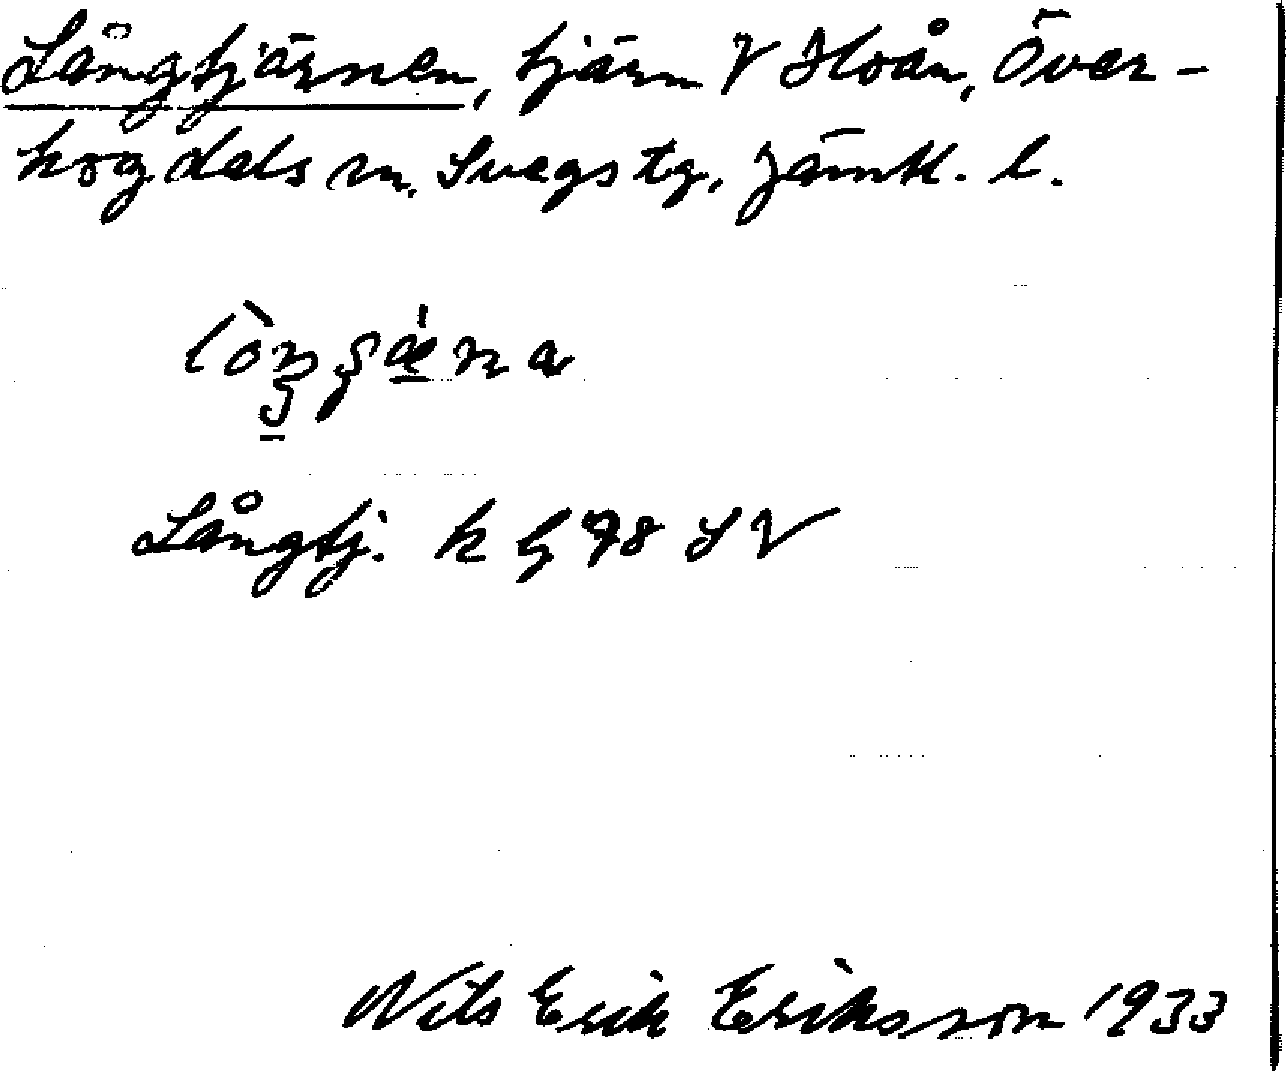 Långtjärnen, tjärn V Hoån, Över-
hogdals sn. Svegs tg, Jämtl. l.
Långtj. k 78 SV
Nils Erik Eriksson 1933